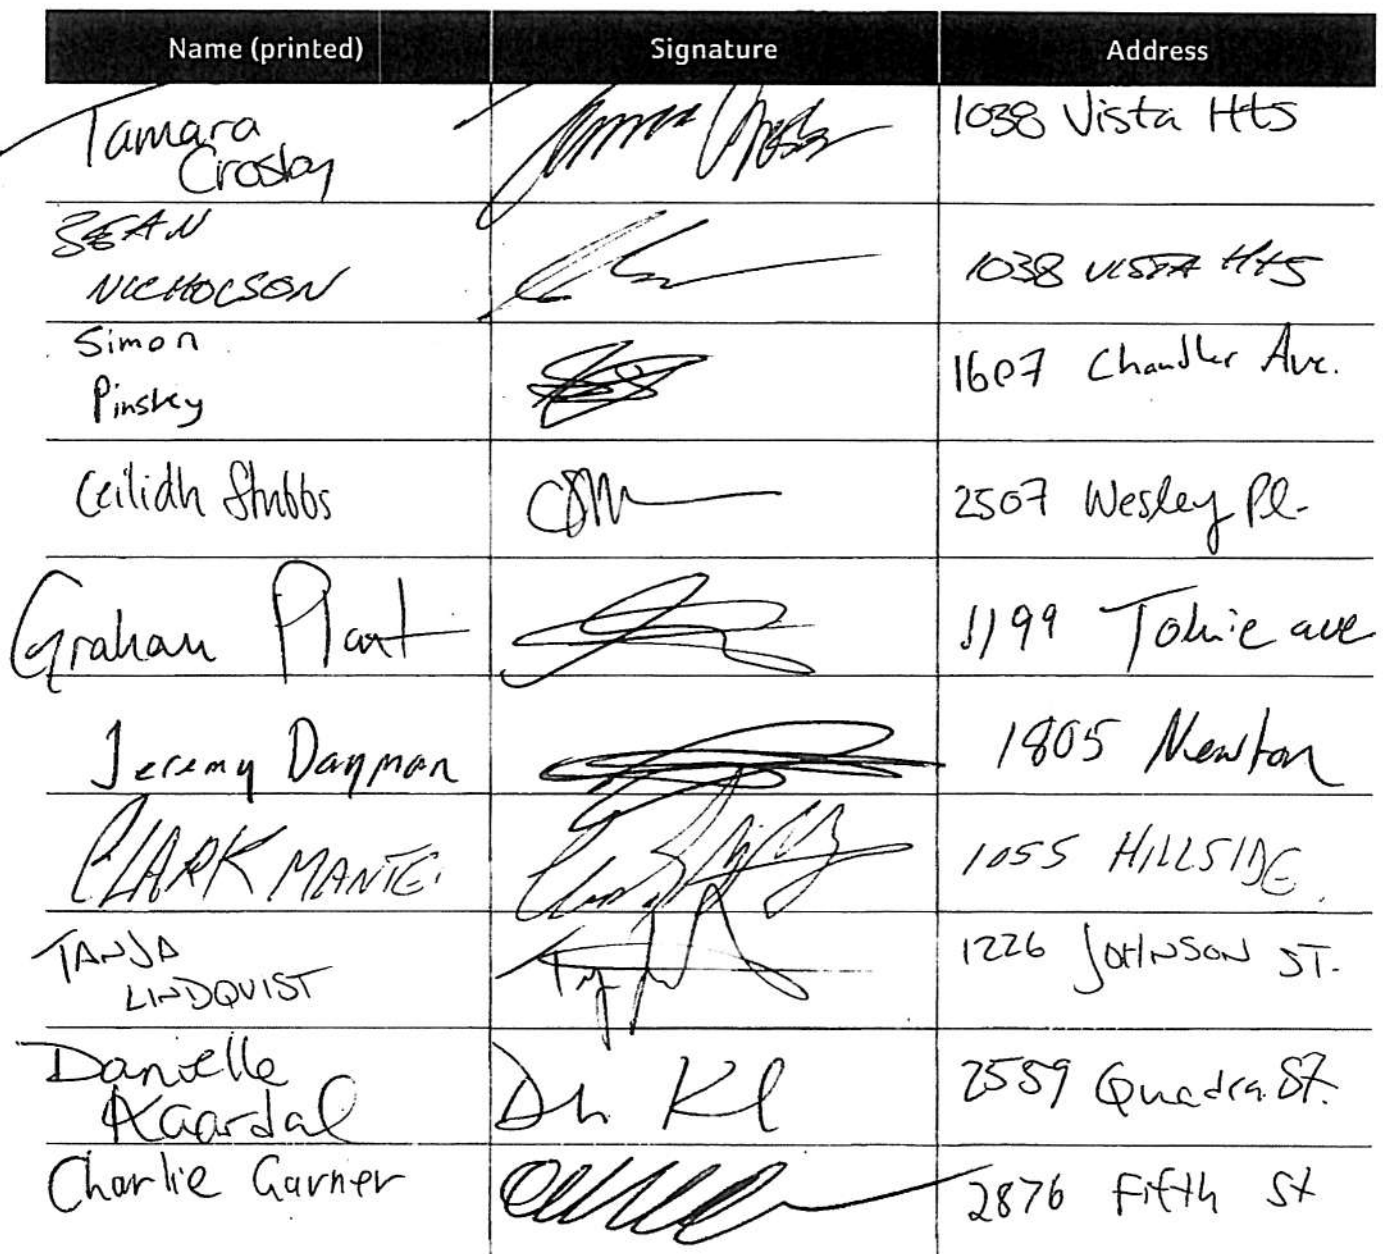 Name (printed) Signature Address
Tamara
Crosby
1038 Vista Hts
SEAN
NICHOLSON
1038 VISTA Hts
Simon
Pinskey
1607 Chandler Ave.
Ceilidh Stubbs
2507 Wesley Pl.
Graham Plant
1199 Tolmie ave
Jeremy Dayman
1805 Newton
CLARK MANTEI
1055 HILLSIDE
TANJA
LINDQVIST
1226 JOHNSON ST.
Danielle
Kaardal
2559 Quadra St.
Charlie Garner
2876 Fifth St